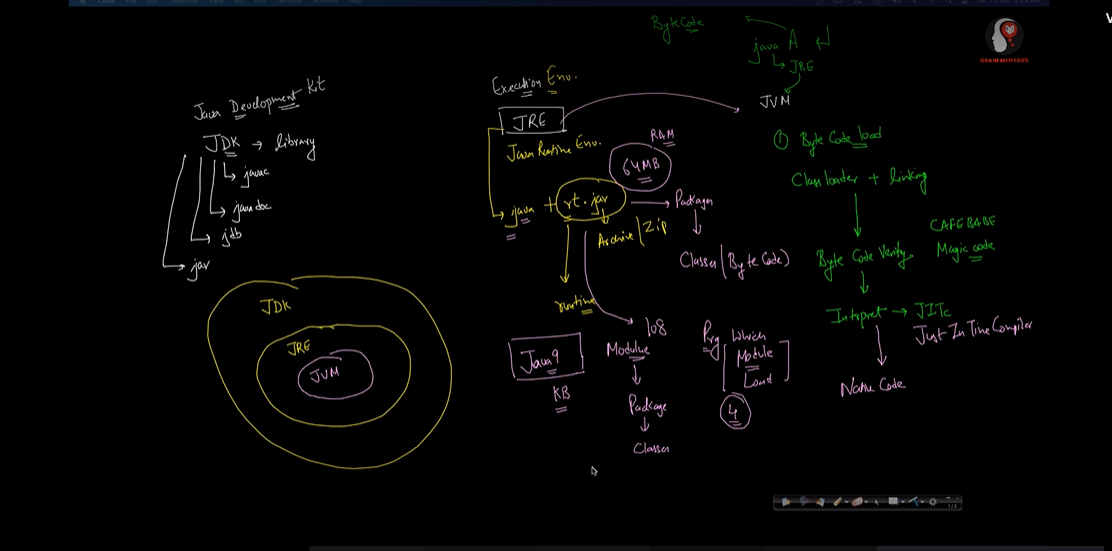 Java Development Kit
JDK → library
javac
javadoc
jdb
jar
JDK
JRE
JVM
Execution Env.
JRE
Java Runtime Env.
java + rt.jar
64MB
RAM
Archive/Zip
runtime
Packages
Classes (Byte Code)
Java 9
KB
108
Module
Package
Classes
Prg Which
Module
Load
4
ByteCode
java A
JRE
JVM
① Byte Code load
Class loader + linking
Byte Code Verify
CAFEBABE
Magic code
Intrpret → JITc
Just In Time Compiler
Native Code
BRAIN MENTORS
1/3